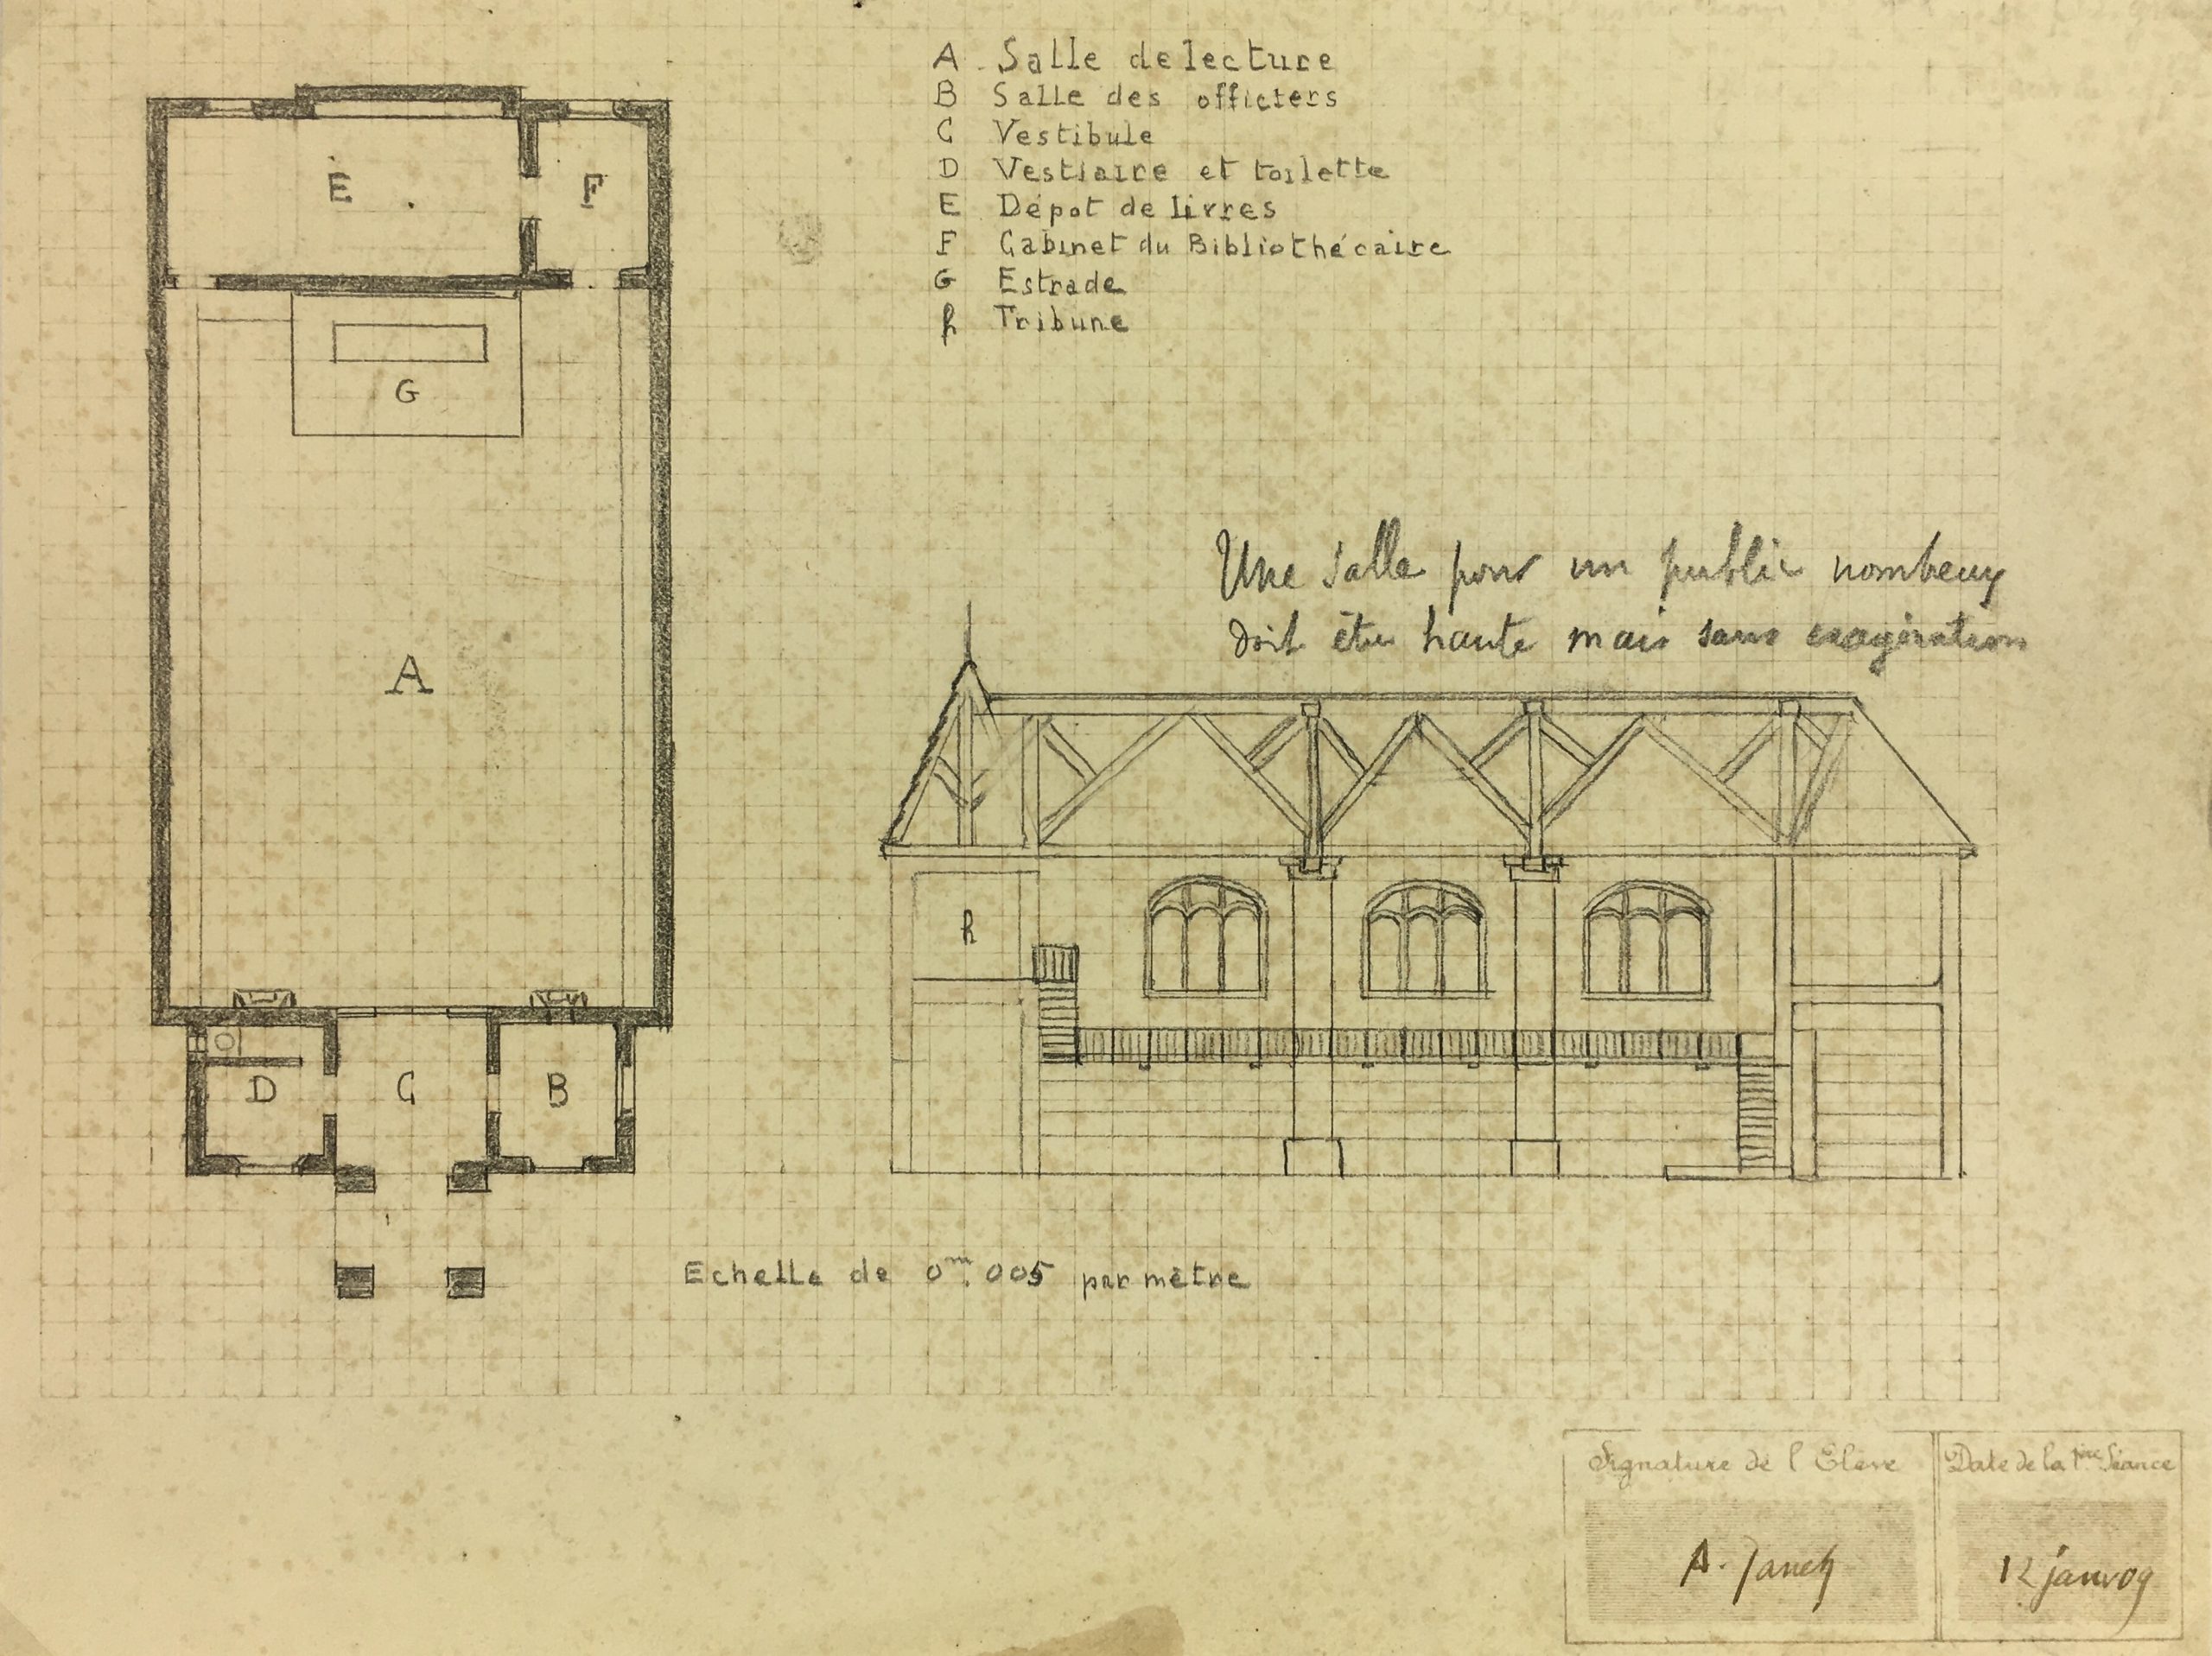 A Salle de lecture
B Salle des officiers
C Vestibule
D Vestiaire et toilette
E Dépot de livres
F Cabinet du Bibliothécaire
G Estrade
h Tribune
E
F
G
A
D
C
B
Une salle pour un public nombeux
doit être haute mais sans exagération
h
Echelle de 0m.005 par mètre
Signature de l'Elève
A.
Date de la 1ère Séance
12 janv 09